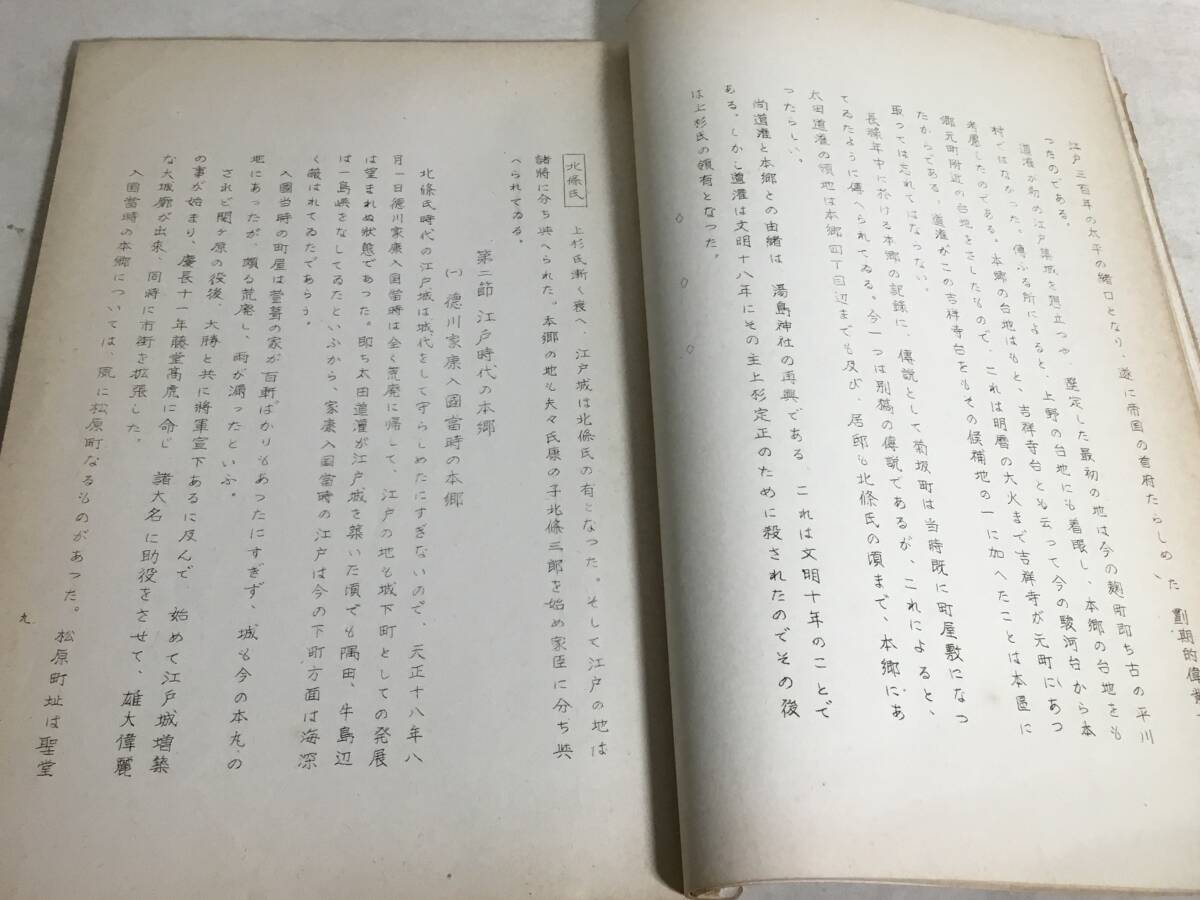 劃期的偉業
江戸三百年の太平の緒口となり、遂に帝国の首府たらしめた
ったのである。
道灌が初め江戸築城を思立つや、選定した最初の地は今の麹町即ち古の平川
村ではなかった。傳ふる所によると、上野の台地にも着眼し、本郷の台地をも
考慮したのである。本郷の台地はもと、吉祥寺台とも云って今の駿河台から本
郷元町附近の台地をさしたもので、これは明暦の大火まで吉祥寺が元町にあっ
たからである。道灌がこの吉祥寺台をもその候補地の一に加へたことは本區に
取っては忘れてはならない。
長禄年中に於ける本郷の記録に、傳説として菊坂町は当時既に町屋敷になっ
てゐたように傳へられてゐる。今一つは別稿の傳説であるが、これによると、
太田道灌の領地は本郷四丁目辺までも及び、居邸も北條氏の頃まで、本郷にあ
ったらしい。
尚道灌と本郷との由緒は、湯島神社の再興である、これは文明十年のことで
ある。しかし道灌は文明十八年にその主上杉定正のために殺されたのでその後
は上杉氏の領有となった。
◇ ◇ ◇ ◇
北條氏 上杉氏漸く衰へ、江戸城は北條氏の有となった。そして江戸の地は
諸將に分ち與へられた。本郷の地も夫々氏康の子北條三郎を始め家臣に分ち與
へられてゐる。
第二節 江戸時代の本郷
(一) 徳川家康入國當時の本郷
北條氏時代の江戸城は城代をして守らしめたにすぎないので、天正十八年八
月一日徳川家康入国當時は全く荒廃に帰して、江戸の地も城下町としての発展
は望まれぬ状態であった。即ち太田道灌が江戸城を築いた頃でも隅田、牛島辺
は一島嶼をなしてゐたといふから、家康入国當時の江戸は今の下町方面は海深
く蔽はれてゐたであらう。
入國当時の町屋は萱葺の家が百軒ばかりもあったにすぎず、城も今の本丸の
地にあったが、頗る荒廃し、雨が漏ったといふ。
されど関ヶ原の役後、大勝と共に將軍宣下あるに及んで、始めて江戸城増築
の事が始まり、慶長十一年藤堂高虎に命じ、諸大名に助役をさせて、雄大偉麗
な大城廓が出来、同時に市街を拡張した。
入国當時の本郷については、夙に松原町なるものがあった。松原町址は聖堂
九